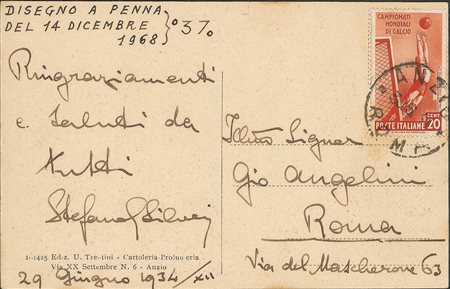 DISEGNO A PENNA
DEL 14 DICEMBRE
1968
°37°
Ringraziamenti
e saluti da
tutti
Stefano Silvei
1-1425 Ediz. U. Trentini - Cartoleria-Profumeria
Via XX Settembre N. 6 - Anzio
29 Giugno 1934/XII
CAMPIONATI
MONDIALI
DI CALCIO
POSTE ITALIANE
CENT.
20
ANZIO
ROMA
Illmo Signor
Gio Angelini
Roma
Via del Mascherone 63